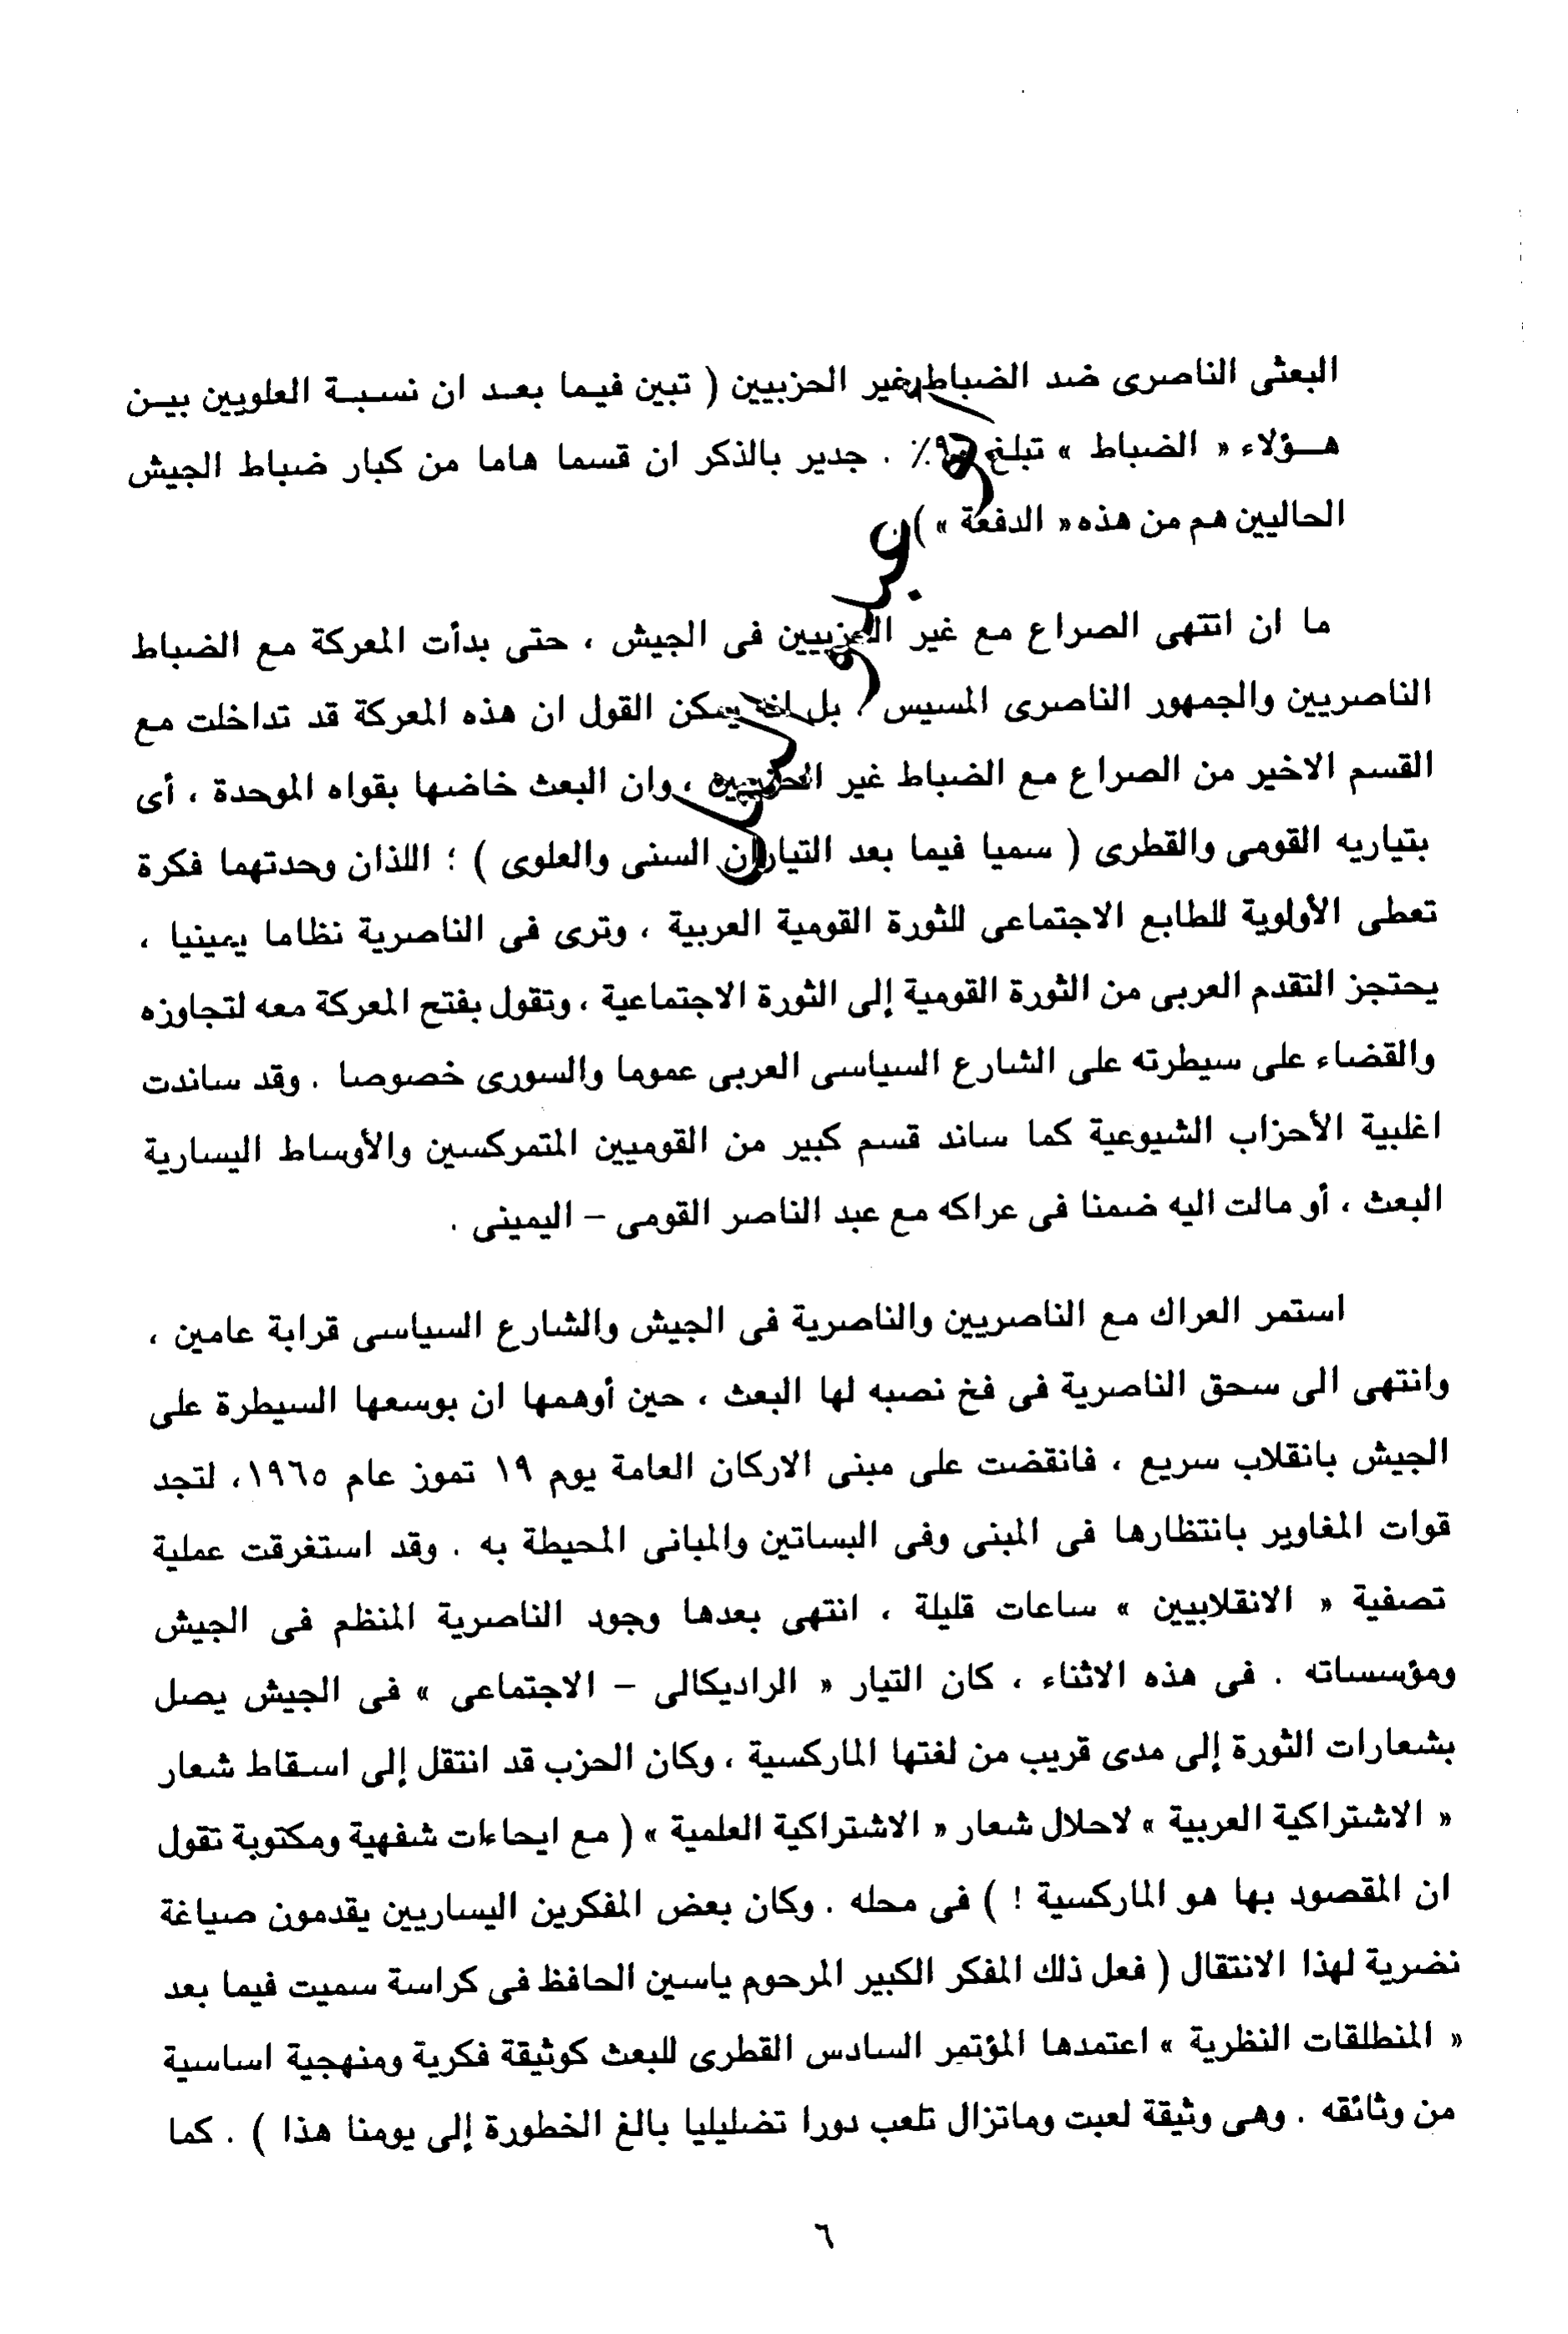 البعثى الناصرى ضد الضباط غير الحزبيين ( تبين فيما بعد ان نسبة العلويين بين
هؤلاء « الضباط » تبلغ ٪ . جدير بالذكر ان قسما هاما من كبار ضباط الجيش
الحاليين هم من هذه « الدفعة » )
ما ان انتهى الصراع مع غير الحزبيين فى الجيش ، حتى بدأت المعركة مع الضباط
الناصريين والجمهور الناصرى المسيس ، بل انه يمكن القول ان هذه المعركة قد تداخلت مع
القسم الاخير من الصراع مع الضباط غير الحزبيين ، وان البعث خاضها بقواه الموحدة ، أى
بتياريه القومى والقطرى ( سميا فيما بعد التياران السنى والعلوى ) ؛ اللذان وحدتهما فكرة
تعطى الأولوية للطابع الاجتماعى للثورة القومية العربية ، وترى فى الناصرية نظاما يمينيا ،
يحتجز التقدم العربى من الثورة القومية إلى الثورة الاجتماعية ، وتقول بفتح المعركة معه لتجاوزه
والقضاء على سيطرته على الشارع السياسى العربى عموما والسورى خصوصا . وقد ساندت
اغلبية الأحزاب الشيوعية كما ساند قسم كبير من القوميين المتمركسين والأوساط اليسارية
البعث ، أو مالت اليه ضمنا فى عراكه مع عبد الناصر القومى – اليمينى .
استمر العراك مع الناصريين والناصرية فى الجيش والشارع السياسى قرابة عامين ،
وانتهى الى سحق الناصرية فى فخ نصبه لها البعث ، حين أوهمها ان بوسعها السيطرة على
الجيش بانقلاب سريع ، فانقضت على مبنى الاركان العامة يوم ١٩ تموز عام ١٩٦٥، لتجد
قوات المغاوير بانتظارها فى المبنى وفى البساتين والمبانى المحيطة به . وقد استغرقت عملية
تصفية « الانقلابيين » ساعات قليلة ، انتهى بعدها وجود الناصرية المنظم فى الجيش
ومؤسساته . فى هذه الاثناء ، كان التيار « الراديكالى – الاجتماعى » فى الجيش يصل
بشعارات الثورة إلى مدى قريب من لغتها الماركسية ، وكان الحزب قد انتقل إلى اسقاط شعار
« الاشتراكية العربية » لاحلال شعار « الاشتراكية العلمية » ( مع ايحاءات شفهية ومكتوبة تقول
ان المقصود بها هو الماركسية ! ) فى محله . وكان بعض المفكرين اليساريين يقدمون صياغة
نضرية لهذا الانتقال ( فعل ذلك المفكر الكبير المرحوم ياسين الحافظ فى كراسة سميت فيما بعد
« المنطلقات النظرية » اعتمدها المؤتمر السادس القطرى للبعث كوثيقة فكرية ومنهجية اساسية
من وثائقه . وهى وثيقة لعبت وماتزال تلعب دورا تضليليا بالغ الخطورة إلى يومنا هذا ) . كما
٦